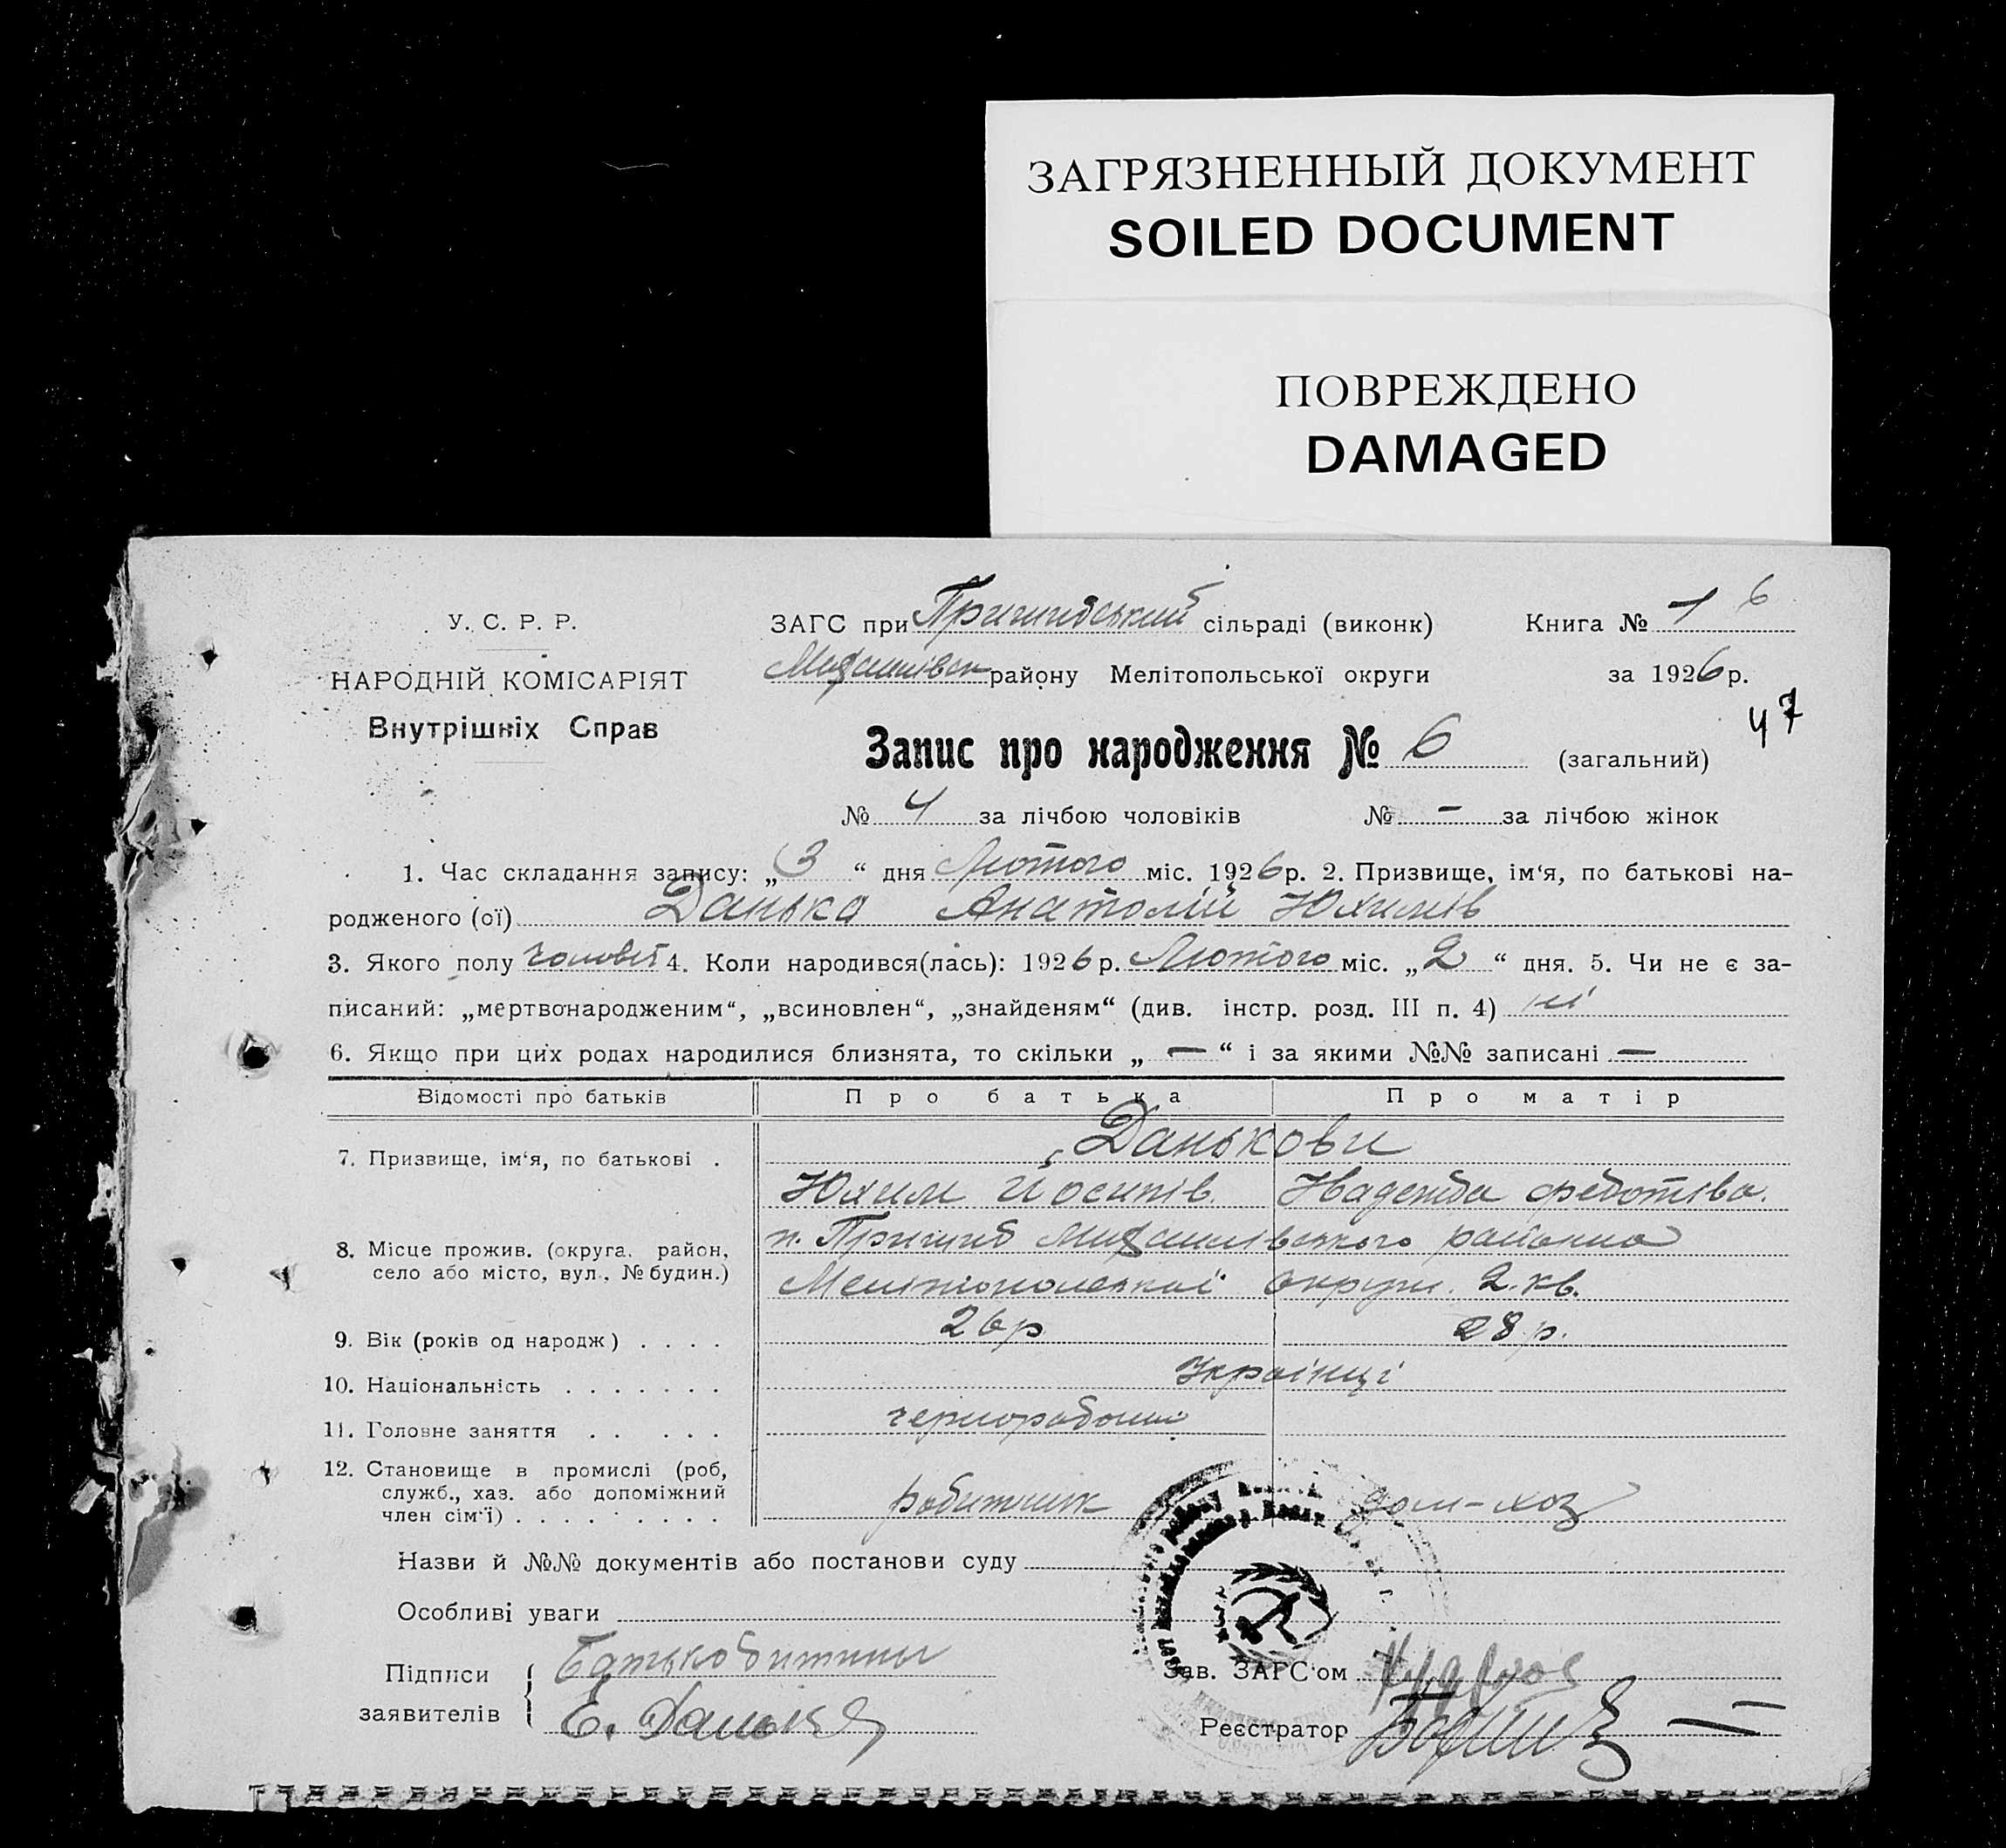 ЗАГРЯЗНЕННЫЙ ДОКУМЕНТ
SOILED DOCUMENT
ПОВРЕЖДЕНО
DAMAGED
У. С. Р. Р.
НАРОДНІЙ КОМІСАРІЯТ
Внутрішніх Справ
ЗАГС при Пришибський сільраді (виконк)
Михайлівськ району Мелітопольської округи
Книга № 1 6
за 1926 р.
47
Запис про народження № 6 (загальний)
№ 4 за лічбою чоловіків № – за лічбою жінок
1. Час складання запису: „3“ дня Лютого міс. 1926 р. 2. Призвище, ім‘я, по батькові на-
родженого (ої) Данько Анатолій Юхимів
3. Якого полу чоловіч 4. Коли народився(лась): 1926 р. Лютого міс. „2“ дня. 5. Чи не є за-
писаний: „мертвонародженим“, „всиновлен“, „знайденям“ (див. інстр. розд. III п. 4) ні
6. Якщо при цих родах народилися близнята, то скільки „—“ і за якими №№ записані —
Відомості про батьків Про батька Про матір
7. Призвище, ім‘я, по батькові . Данькови
Юхим Йосипів. Надежда Федотіва.
8. Місце прожив. (округа, район, село або місто, вул., № будин.) п. Пришиб Михайлівського района
Мелітопольської округи. 2. кв.
9. Вік (років од народж) . . . . 26 р 28 р.
10. Національність . . . . . . . Українці
11. Головне заняття . . . . . чернорабочий
12. Становище в промислі (роб, служб., хаз. або допоміжний член сім‘ї) . . . . . . . . . робитник дом-хоз
Назви й №№ документів або постанови суду
Особливі уваги
Підписи заявителів
Батько битины
Е. Данько
Зав. ЗАГС‘ом
Реєстратор